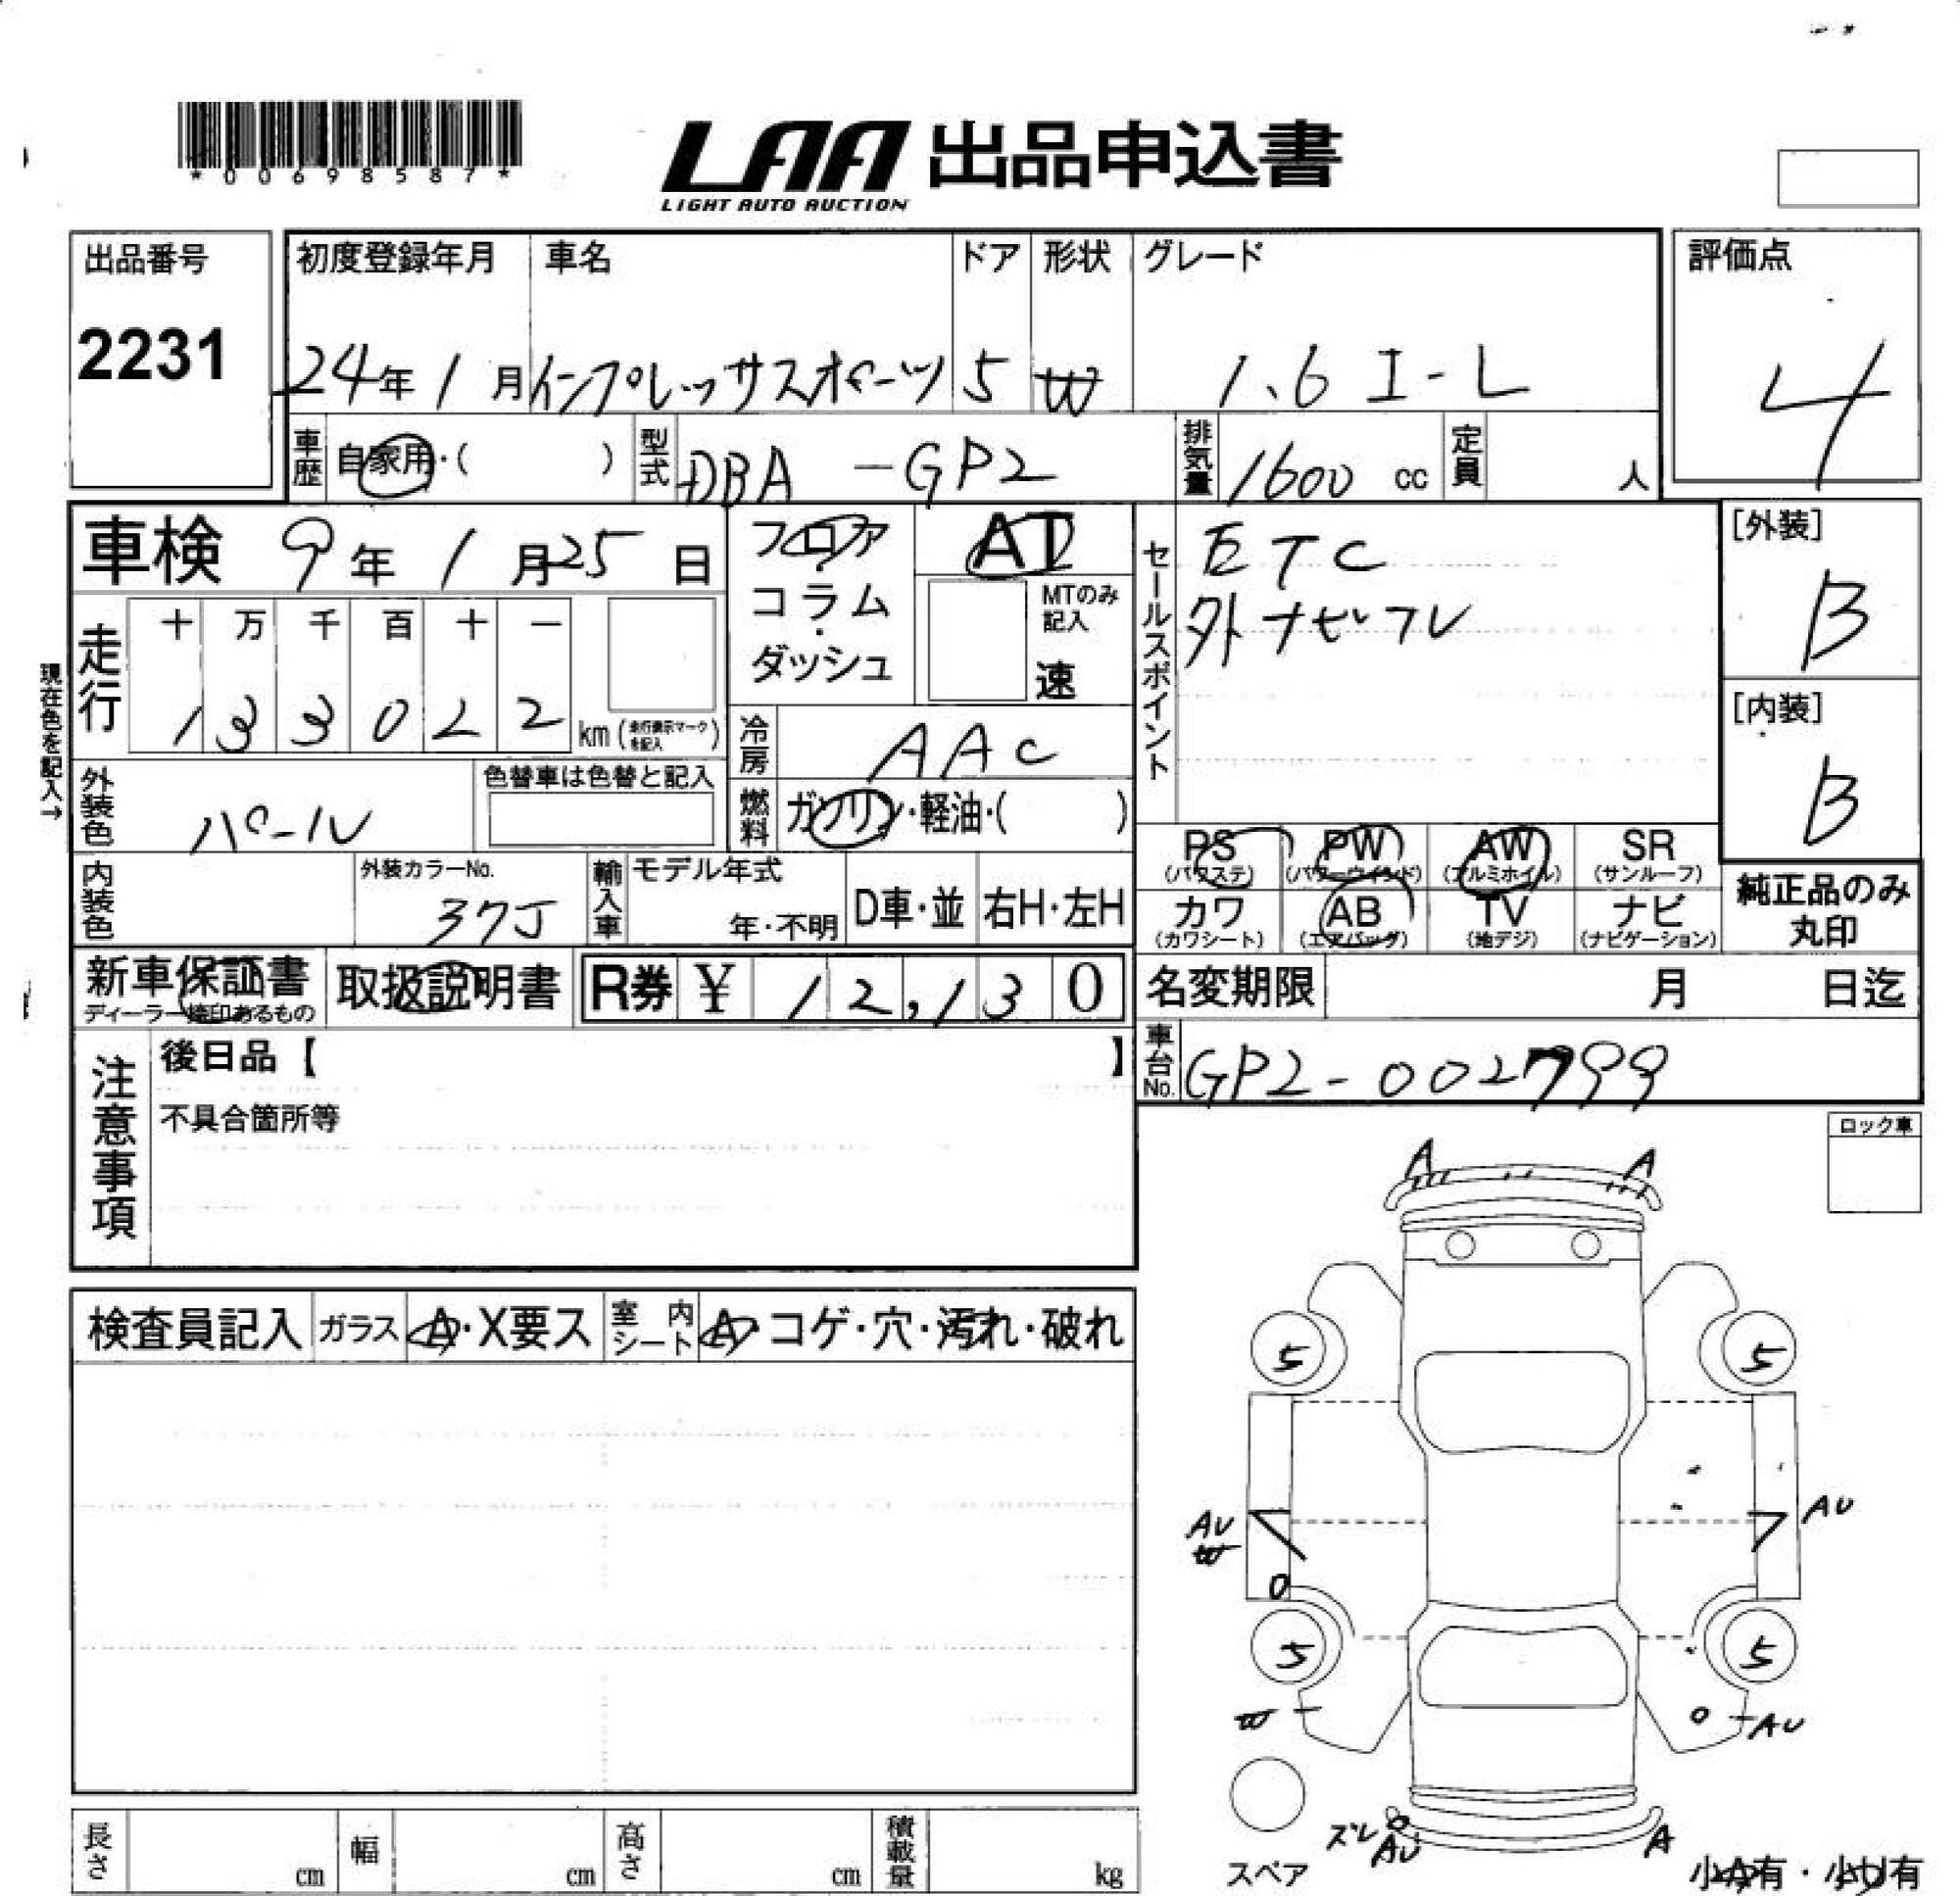 *00698587*
LAA 出品申込書
LIGHT AUTO AUCTION
出品番号
2231
初度登録年月 車名 ドア 形状 グレード
24年 1月 インプレッサスポーツ 5 W 1.6 I-L
評価点
4
車歴 自家用・( ) 型式 DBA -GP2 排気量 1600 cc 定員 人
車検 9年 1月25日
フロア・コラム・ダッシュ
AT
MTのみ記入
速
セールスポイント
ETC
外ナビフレ
[外装]
B
[内装]
B
現在色を記入→
走行 十 万 千 百 十 一
1 3 3 0 2 2 km (走行表示マークを記入)
冷房 AAC
外装色 パール
色替車は色替と記入
燃料 ガソリン・軽油・( )
PS (パワステ) PW (パワーウィンド) AW (アルミホイル) SR (サンルーフ)
カワ (カワシート) AB (エアバッグ) TV (地デジ) ナビ (ナビゲーション)
純正品のみ丸印
内装色
外装カラーNo.
37J
輸入車 モデル年式 年・不明 D車・並 右H・左H
新車保証書
ディーラー捺印あるもの
取扱説明書
R券 ¥ 12,130
名変期限 月 日迄
車台No. GP2-002799
注意事項
後日品【 】
不具合箇所等
ロック車
A A
検査員記入 ガラス A・X要ス 室内シート A・コゲ・穴・汚れ・破れ
5 5
AU
W
AU
5 5
W AU
ズレ AU A
スペア
小A有・小U有
長さ cm 幅 cm 高さ cm 積載量 kg